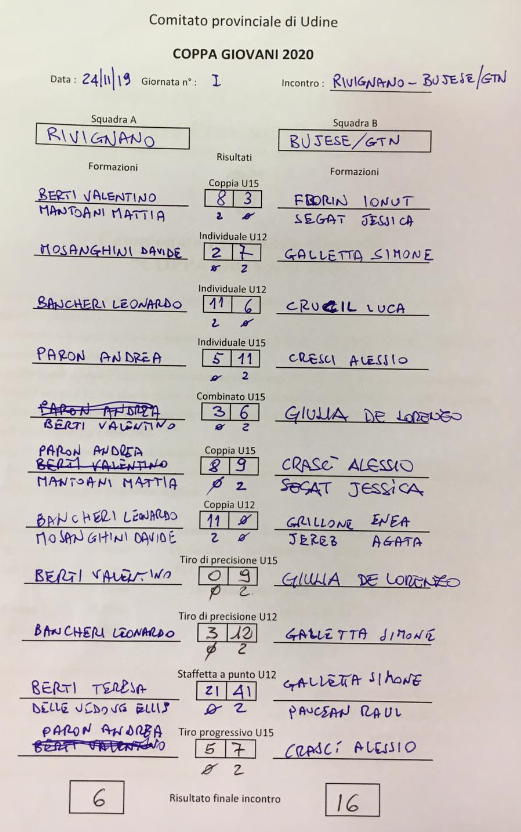 Comitato provinciale di Udine
COPPA GIOVANI 2020
Data : 24/11/19 Giornata n° : I Incontro : RIVIGNANO - BUJESE/GTN
Squadra A Squadra B
RIVIGNANO BUJESE/GTN
Formazioni Risultati Formazioni
Coppia U15
BERTI VALENTINO 8 3 FLORIN IONUT
MANTOANI MATTIA 2 0 SEGAT JESSICA
Individuale U12
MOSANGHINI DAVIDE 2 7 GALLETTA SIMONE
0 2
Individuale U12
BANCHERI LEONARDO 11 6 CRUCIL LUCA
2 0
Individuale U15
PARON ANDREA 5 11 CRESCI ALESSIO
0 2
Combinato U15
PARON ANDREA 3 6 GIULIA DE LORENZO
BERTI VALENTINO 0 2
PARON ANDREA Coppia U15
BERTI VALENTINO 8 9 CRASCÌ ALESSIO
MANTOANI MATTIA 0 2 SEGAT JESSICA
Coppia U12
BANCHERI LEONARDO 11 0 GRILLONE ENEA
MOSANGHINI DAVIDE 2 0 JEREB AGATA
Tiro di precisione U15
BERTI VALENTINO 0 9 GIULIA DE LORENZO
0 2
Tiro di precisione U12
BANCHERI LEONARDO 3 12 GALLETTA SIMONE
0 2
Staffetta a punto U12
BERTI TERESA 21 41 GALLETTA SIMONE
DELLE VEDOVE ELLIS 0 2 PAUCEAN RAUL
PARON ANDREA Tiro progressivo U15
BERTI VALENTINO 5 7 CRASCÌ ALESSIO
0 2
6 Risultato finale incontro 16